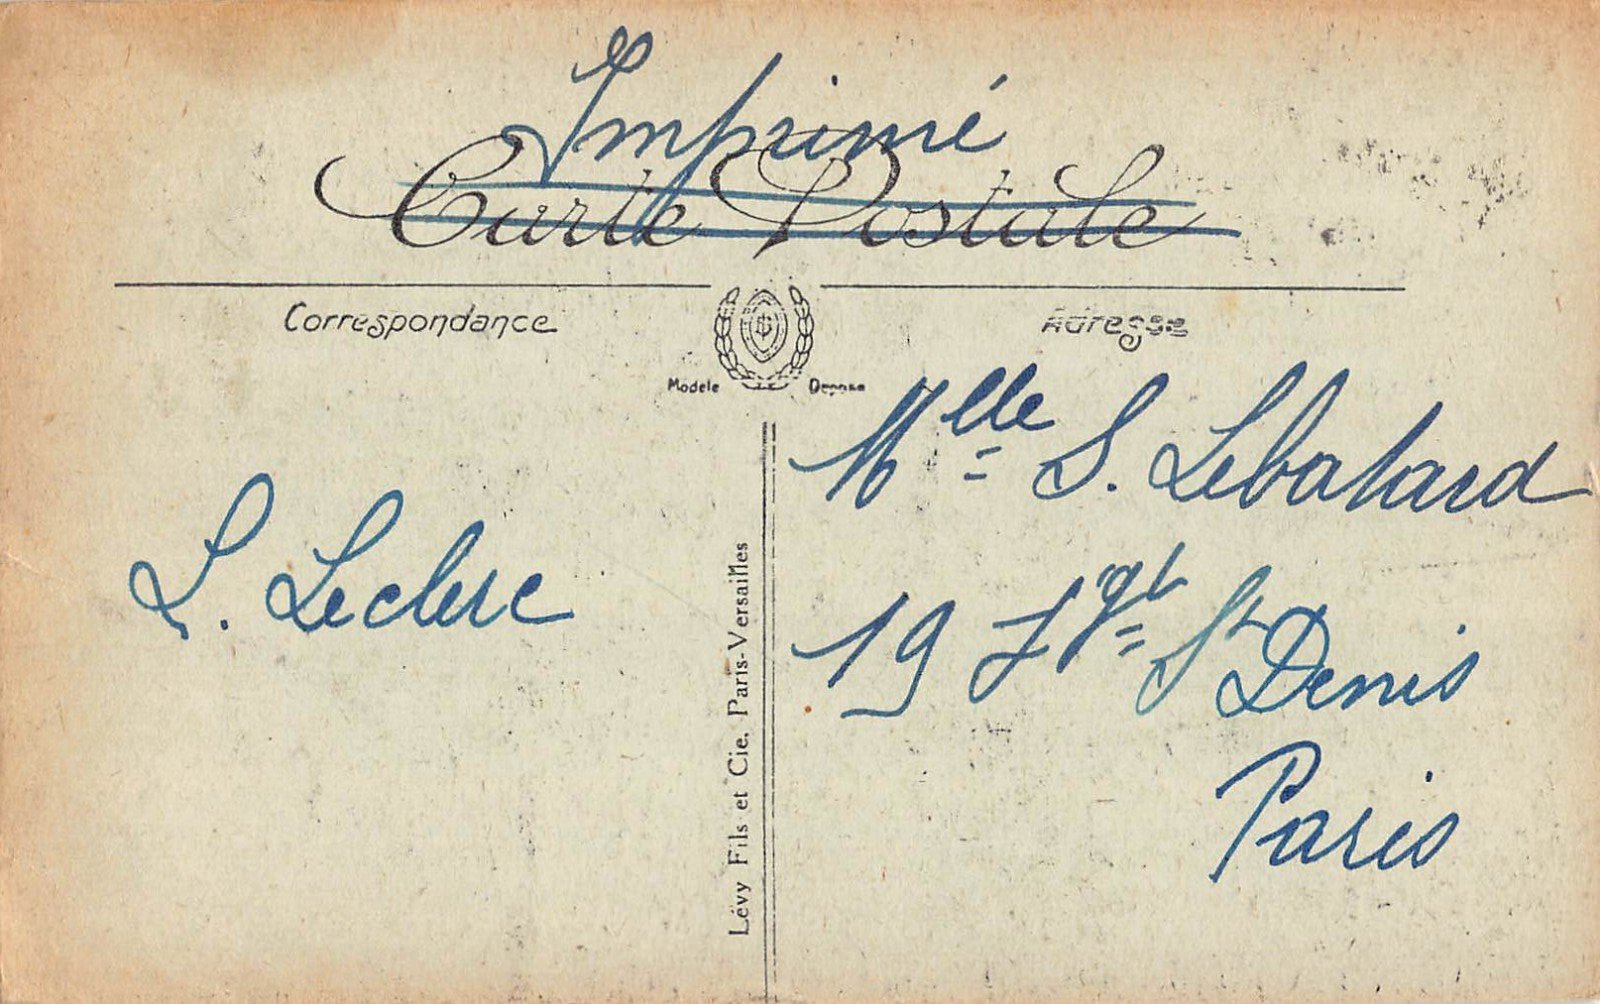 Imprimé
Carte Postale
Correspondance
Adresse
Modèle Déposé
Mlle S. Lebatard
L. Leclerc
19 Fg St Denis
Paris
Lévy Fils et Cie, Paris-Versailles